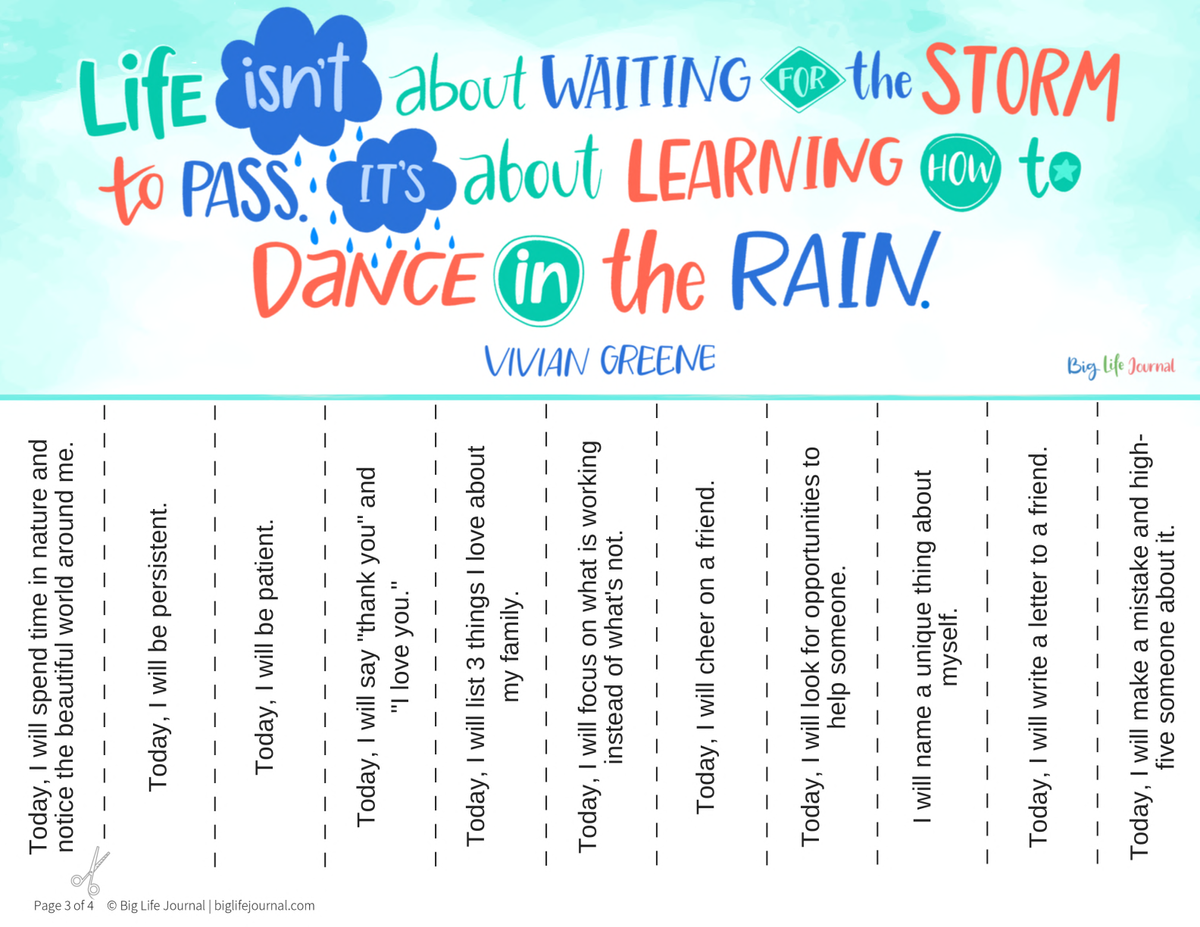 Life isn't about WAITING FOR the STORM
to PASS. IT'S about LEARNING HOW to
DANCE in the RAIN.
VIVIAN GREENE
Big Life Journal
Today, I will spend time in nature and
notice the beautiful world around me.
Today, I will be persistent.
Today, I will be patient.
Today, I will say "thank you" and
"I love you."
Today, I will list 3 things I love about
my family.
Today, I will focus on what is working
instead of what's not.
Today, I will cheer on a friend.
Today, I will look for opportunities to
help someone.
I will name a unique thing about
myself.
Today, I will write a letter to a friend.
Today, I will make a mistake and high-
five someone about it.
Page 3 of 4 © Big Life Journal | biglifejournal.com